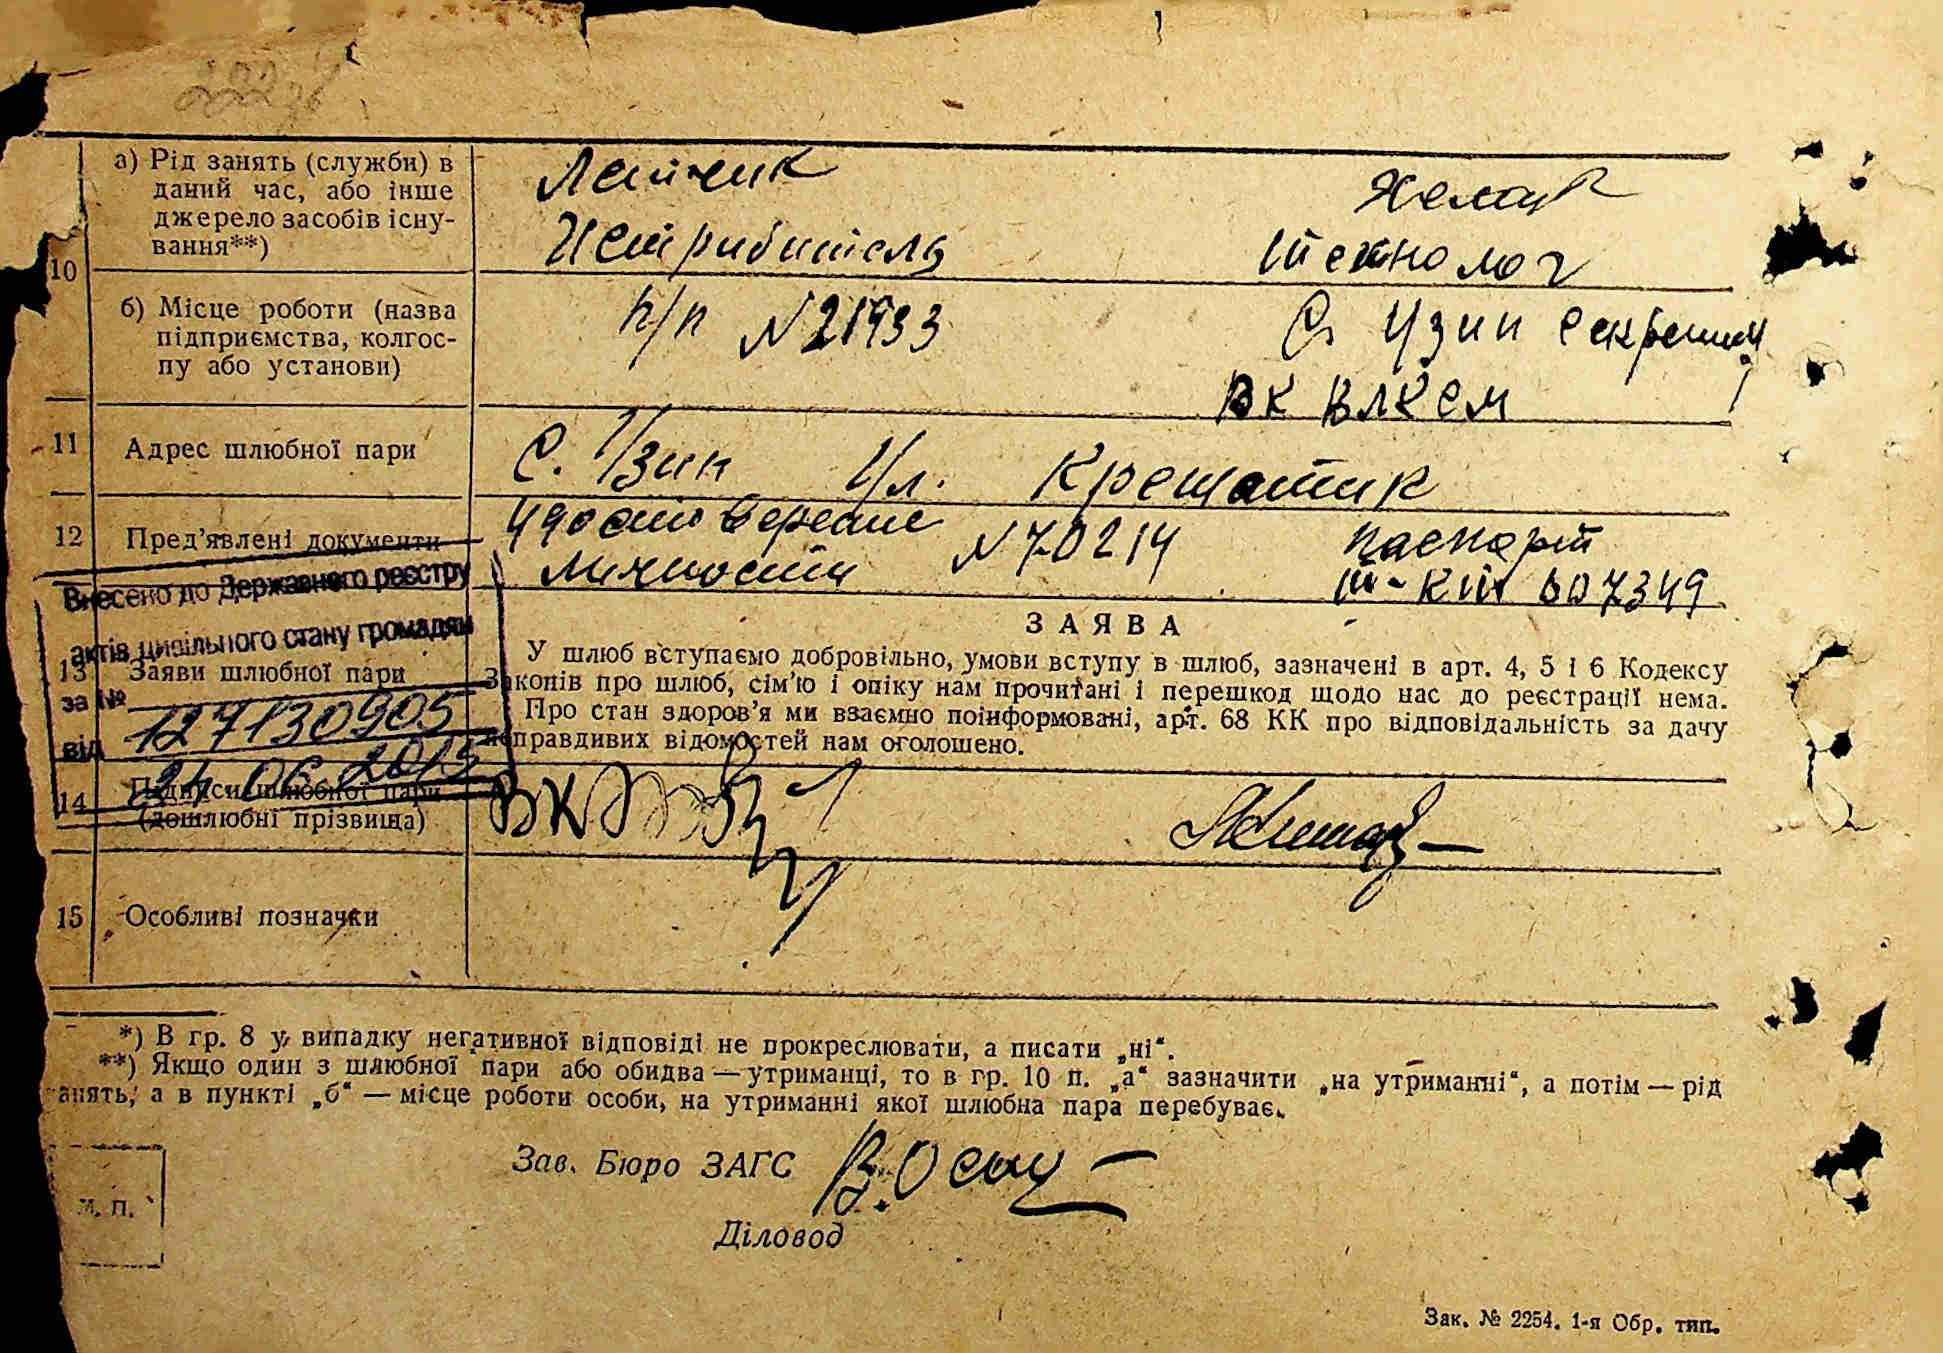 а) Рід занять (служби) в
даний час, або інше
джерело засобів існу-
вання**)
Летчик
Истрибитель
Технолог
10
б) Місце роботи (назва
підприємства, колгос-
пу або установи)
п/п №21933
С. Узин Секретарь
ВК ВЛКСМ
11
Адрес шлюбної пари
С. Узин Ул. Крещатик
12
Пред'явлені документи
Удостоверение
Личности №70214
паспорт
607349
Внесено до Державного реєстру
актів цивільного стану громадян
за №
127130905
від 24.06.2015
13
Заяви шлюбної пари
ЗАЯВА
У шлюб вступаємо добровільно, умови вступу в шлюб, зазначені в арт. 4, 5 і 6 Кодексу
Законів про шлюб, сім'ю і опіку нам прочитані і перешкод щодо нас до реєстрації нема.
Про стан здоров'я ми взаємно поінформовані, арт. 68 КК про відповідальність за дачу
неправдивих відомостей нам оголошено.
14
Підписи шлюбної пари
(дошлюбні прізвища)
15
Особливі позначки
*) В гр. 8 у випадку негативної відповіді не прокреслювати, а писати „ні“.
**) Якщо один з шлюбної пари або обидва — утриманці, то в гр. 10 п. „а“ зазначити „на утриманні“, а потім — рід
анять, а в пункті „б“ — місце роботи особи, на утриманні якої шлюбна пара перебуває.
Зав. Бюро ЗАГС
Діловод
М. П.
Зак. № 2254. 1-я Обр. тип.